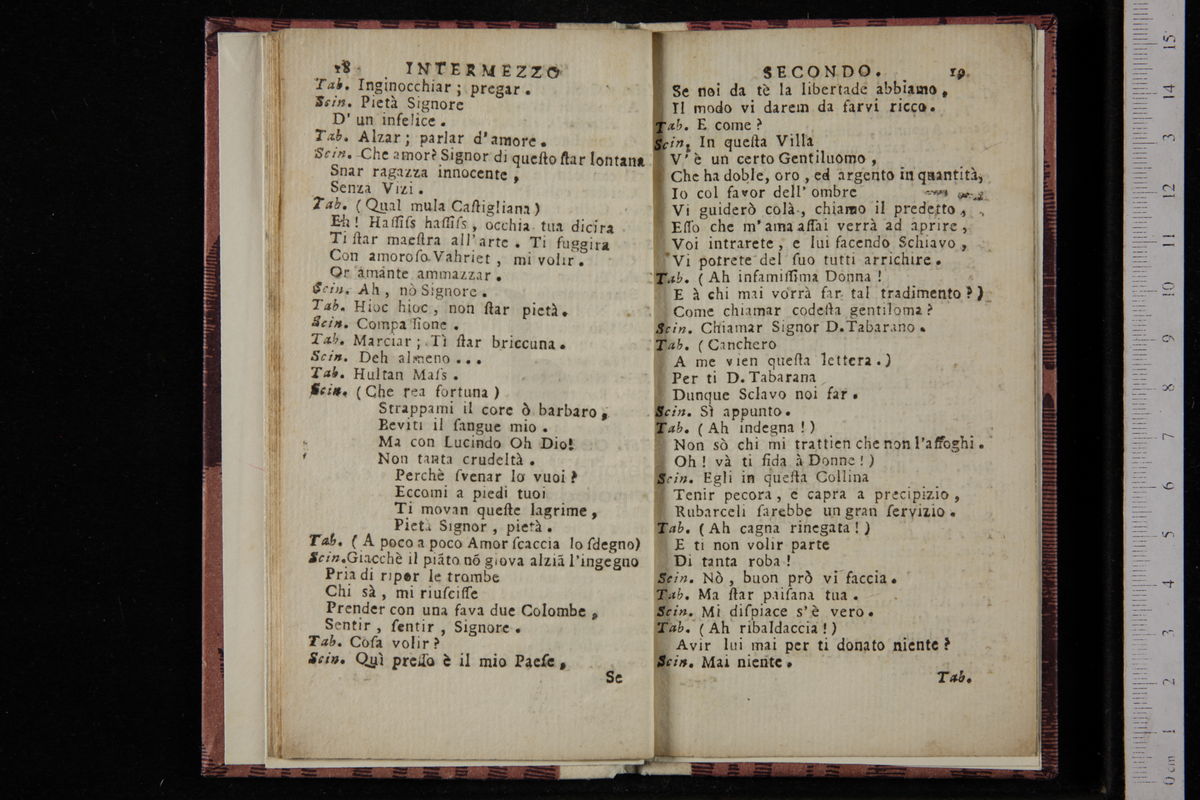 18 INTERMEZZO
Tab. Inginocchiar ; pregar .
Scin. Pietà Signore
D' un infelice .
Tab. Alzar ; parlar d'amore .
Scin. Che amor? Signor di queſto ſtar lontana
Snar ragazza innocente ,
Senza Vizi .
Tab. ( Qual mula Caſtigliana )
Eh ! Haſſiſs haſſiſs , occhia tua dicira
Ti ſtar maeſtra all'arte . Ti fuggira
Con amoroſo Vahriet , mi volir .
Or amante ammazzar .
Scin. Ah , nò Signore .
Tab. Hioc hioc , non ſtar pietà .
Scin. Compaſſione .
Tab. Marciar ; Ti ſtar briccuna .
Scin. Deh almeno ...
Tab. Hultan Maſs .
Scin. ( Che rea fortuna )
Strappami il core ò barbaro ,
Beviti il ſangue mio .
Ma con Lucindo Oh Dio!
Non tanta crudeltà .
Perchè ſvenar lo vuoi ?
Eccomi a piedi tuoi
Ti movan queſte lagrime ,
Pietà Signor , pietà .
Tab. ( A poco a poco Amor ſcaccia lo ſdegno)
Scin. Giacchè il piāto nō giova alziā l'ingegno
Pria di ripor le trombe
Chi sà , mi riuſciſſe
Prender con una fava due Colombe ,
Sentir , ſentir , Signore .
Tab. Coſa volir ?
Scin. Quì preſſo è il mio Paeſe ,
Se
SECONDO. 19
Se noi da tè la libertade abbiamo ,
Il modo vi darem da farvi ricco .
Tab. E come ?
Scin. In queſta Villa
V' è un certo Gentiluomo ,
Che ha doble, oro , ed argento in quantità,
Io col favor dell' ombre
Vi guiderò colà , chiamo il predetto ,
Eſſo che m'ama aſſai verrà ad aprire ,
Voi intrarete , e lui facendo Schiavo ,
Vi potrete del ſuo tutti arrichire .
Tab. ( Ah infamiſſima Donna !
E à chi mai vorrà far tal tradimento ? )
Come chiamar codeſta gentiloma ?
Scin. Chiamar Signor D. Tabarano .
Tab. ( Canchero
A me vien queſta lettera . )
Per ti D. Tabarana
Dunque Sclavo noi far .
Scin. Sì appunto .
Tab. ( Ah indegna ! )
Non sò chi mi trattien che non l'affoghi .
Oh ! và ti fida à Donne ! )
Scin. Egli in queſta Collina
Tenir pecora , e capra a precipizio ,
Rubarceli ſarebbe un gran ſervizio .
Tab. ( Ah cagna rinegata ! )
E ti non volir parte
Di tanta roba !
Scin. Nò , buon prò vi faccia .
Tab. Ma ſtar paiſana tua .
Scin. Mi diſpiace s'è vero .
Tab. ( Ah ribaldaccia ! )
Avir lui mai per ti donato niente ?
Scin. Mai niente .
Tab.
0 cm 1 2 3 4 5 6 7 8 9 10 11 12 13 14 15